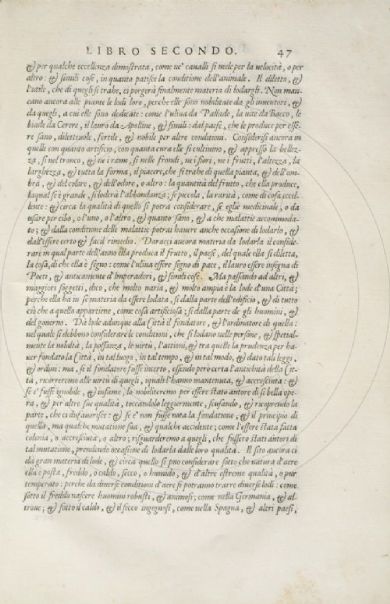 LIBRO SECONDO. 47
& per qualche eccellenza dimostrata, come ne' caualli si vede per la velocità, o per
altro: & simili cose, in quanto patisce la conditione dell'animale. Il diletto, &
l'utile, che di quegli si trahe, ci porgerà finalmente materia di lodargli. Non man-
cano ancora alle piante le lodi loro, perche elle sono nobilitate da gli inuentori, &
da quegli, a cui elle sono dedicate: come l'uliua da Pallade, la uite da Bacco, le
biade da Cerere, il lauro da Apolline, & simili: dal paese, che le produce per esse-
re sano, diletteuole, fertile, & nobile per altre conditioni. Considerisi ancora in
quelle con quanto artificio, con quanta cura elle si cultiuino, & appresso la bellez-
za, si nel tronco, & ne i rami, si nelle frondi, ne i fiori, ne i frutti, l'altezza, la
larghezza, & tutta la forma, il piacere, che si trahe di quella pianta, & dell'om-
bra, & del colore, & dell'odore, o altro: la quantità del frutto, che ella produce,
la qual se è grande, si loderà l'abbondanza; se piccola, la rarità, come di cosa eccel-
lente: & circa le qualità di quello si potrà considerare, se egli è medicinale, o da
usare per cibo, o l'uno, o l'altro, & quanto sano, & a che malattie accommoda-
to; & dalla conditione delle malattie potrai hauere anche occasione di lodarlo, &
dall'essere certo & facil rimedio. Daracci ancora materia da lodarla il conside-
rare in qual parte dell'anno ella produca il frutto, il paese, del quale ella si diletta,
la cosa, di che ella è segno: come l'uliua essere segno di pace, il lauro essere insegna di
Poeti, & anticamente d'Imperadori, & simili cose. Ma passando ad altri, &
maggiori soggetti, dico, che molto varia, & molto ampia è la lode d'una Città;
perche ella ha in se materia da essere lodata, si dalla parte dell'edificio, & di tutto
ciò che a quella appartiene, come cosa artificiosa; si dalla parte de gli huomini, &
del gouerno. Dà lode adunque alla Città il fondatore, & l'ordinatore di quella:
nel quale si debbono considerare le conditioni, che si lodano nelle persone, & spetial-
mente la nobiltà, la possanza, le uirtù, l'attioni, & tra quelle la prudenza per ha-
uer fondato la Città, in tal luogo, in tal tempo, & in tal modo, & dato tali leggi,
& ordini: ma, se il fondatore fosse incerto, essendo però certa l'antichità della Cit-
tà, ricorreremo alle uirtù di quegli, i quali l'hanno mantenuta, & accresciuta: &
se e' fusse ignobile, & infame, lo nobiliteremo per essere stato autore di si bella ope-
ra, & per altre sue qualità, toccandole leggiermente, scusando, & ricoprendo la
parte, che ci disfauorisse: & se e' non fusse nota la fondatione, & il principio di
quella, ma qualche mutatione sua, & qualche accidente; come l'essere stata fatta
colonia, o accresciuta, o altro; risguarderemo a quegli, che fussero stati autori di
tal mutatione, prendendo occasione di lodarla dalle loro qualità. Il sito ancora ci
dà gran materia di lode, & circa quello si può considerare sotto che natura d'aere
ella è posta, freddo, o caldo, secco, o humido, & d'altre estreme qualità, o pur
temperato: perche da diuerse conditioni d'aere si potranno trarre diuerse lodi: come
sotto il freddo nascere huomini robusti, & animosi; come nella Germania, & al-
troue; & sotto il caldo, & il secco ingegnosi, come nella Spagna, & altri paesi,